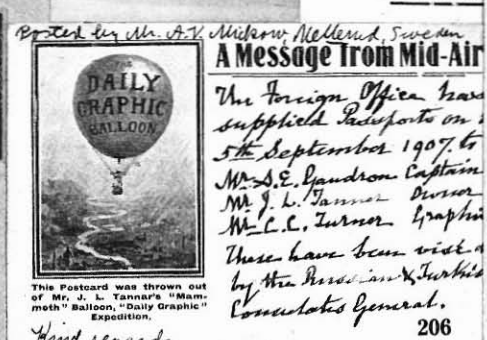 Posted by Mr. A.V. Mickow, Mellerud, Sweden
A Message from Mid-Air
THE
DAILY
GRAPHIC
BALLOON
This Postcard was thrown out
of Mr. J. L. Tannar's "Mam-
moth" Balloon, "Daily Graphic"
Expedition.
Kind regards
The Foreign Office have
supplied Passports on
5th September 1907 to
Mr. A.E. Gaudron Captain
Mr J. L. Tannar Owner
Mr C. C. Turner Graphic
These have been viséd
by the Russian & Turkish
Consulates General.
206